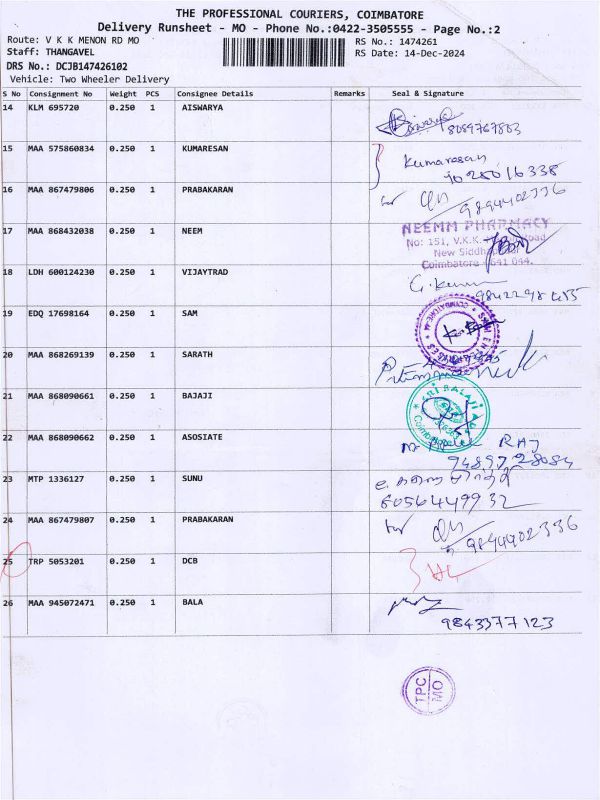 THE PROFESSIONAL COURIERS, COIMBATORE
Delivery Runsheet - MO - Phone No.:0422-3505555 - Page No.:2
Route: V K K MENON RD MO
RS No.: 1474261
Staff: THANGAVEL
RS Date: 14-Dec-2024
DRS No.: DCJB147426102
Vehicle: Two Wheeler Delivery
S No Consignment No Weight PCS Consignee Details Remarks Seal & Signature
14 KLM 695720 0.250 1 AISWARYA
8089767803
15 MAA 575860834 0.250 1 KUMARESAN Kumaresan
16 MAA 867479806 0.250 1 PRABAKARAN for
9894402336
17 MAA 868432038 0.250 1 NEEM NEEMM PHARMACY
No: 151, V.K.K.
New
Coimbatore - 641 044.
18 LDH 600124230 0.250 1 VIJAYTRAD
19 EDQ 17698164 0.250 1 SAM
COIMBATORE-44
20 MAA 868269139 0.250 1 SARATH
21 MAA 868090661 0.250 1 BAJAJI
SRI BALAJI
22 MAA 868090662 0.250 1 ASOSIATE
RAJ
9489728084
23 MTP 1336127 0.250 1 SUNU
8056449932
24 MAA 867479807 0.250 1 PRABAKARAN for
9894402336
25 TRP 5053201 0.250 1 DCB
26 MAA 945072471 0.250 1 BALA
9843377123
TPC
MO